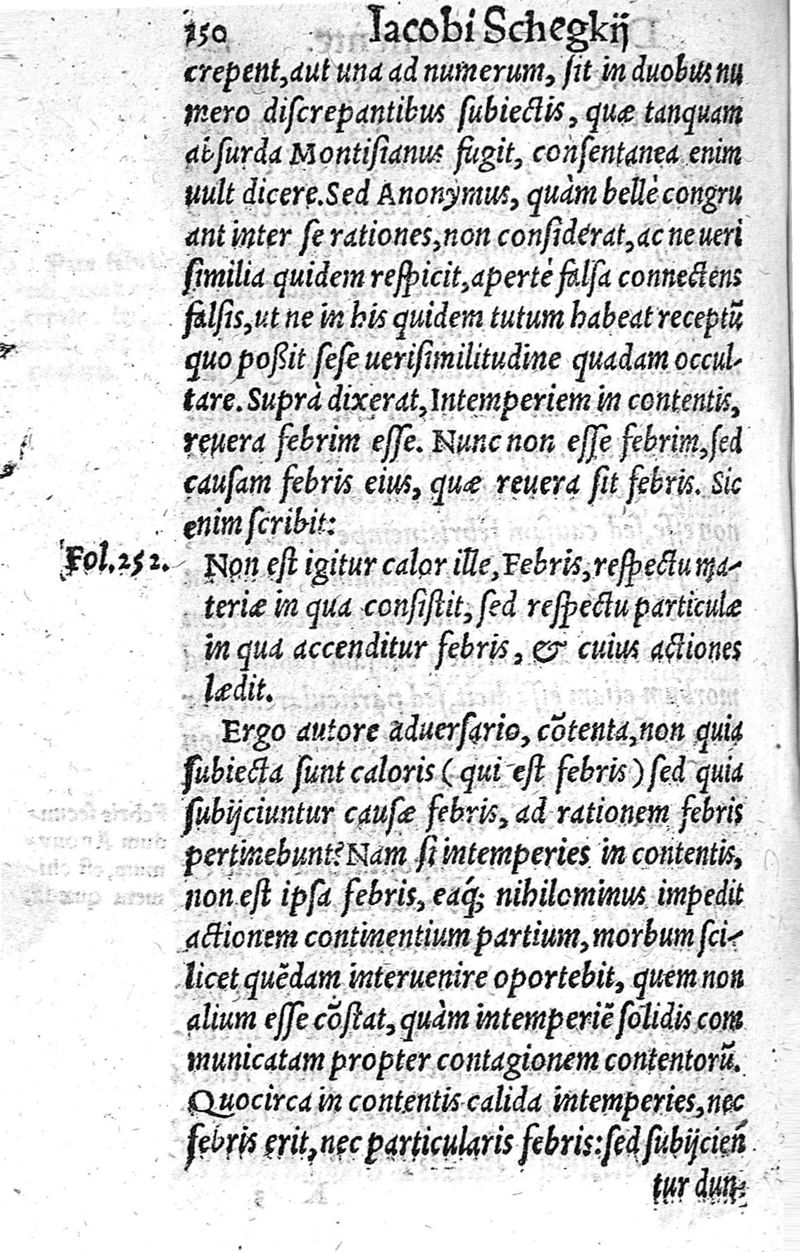 150 Iacobi Schegkij
crepent, aut una ad numerum, ſit in duobus nu
mero diſcrepantibus ſubiectis, quæ tanquam
abſurda Montiſianus fugit, conſentanea enim
uult dicere. Sed Anonymus, quàm bellè congru
ant inter ſe rationes, non conſiderat, ac ne ueri
ſimilia quidem reſpicit, apertè falſa connectens
falſis, ut ne in his quidem tutum habeat receptũ
quo poßit ſeſe ueriſimilitudine quadam occul-
tare. Suprà dixerat, Intemperiem in contentis,
reuera febrim eſſe. Nunc non eſſe febrim, ſed
cauſam febris eius, quæ reuera ſit febris. Sic
enim ſcribit:
Fol. 252. Non eſt igitur calor ille, Febris, reſpectu ma-
teriæ in qua conſiſtit, ſed reſpectu particulæ
in qua accenditur febris, & cuius actiones
lædit.
Ergo autore aduerſario, cõtenta, non quia
ſubiecta ſunt caloris (qui eſt febris) ſed quia
ſubijciuntur cauſæ febris, ad rationem febris
pertinebunt? Nam ſi intemperies in contentis,
non eſt ipſa febris, eaq́; nihilominus impedit
actionem continentium partium, morbum ſci-
licet quẽdam interuenire oportebit, quem non
alium eſſe cõſtat, quàm intemperiẽ ſolidis com
municatam propter contagionem contentorũ.
Quocirca in contentis calida intemperies, nec
febris erit, nec particularis febris: ſed ſubijcien
tur dun-